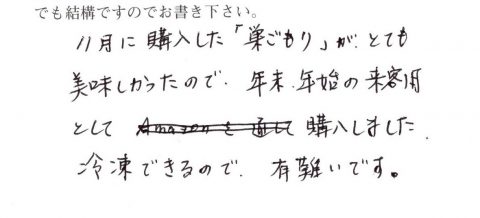 でも結構ですのでお書き下さい。
11月に購入した「巣ごもり」が、とても
美味しかったので、年末、年始の来客用
として Amazonを通して 購入しました。
冷凍できるので、有難いです。